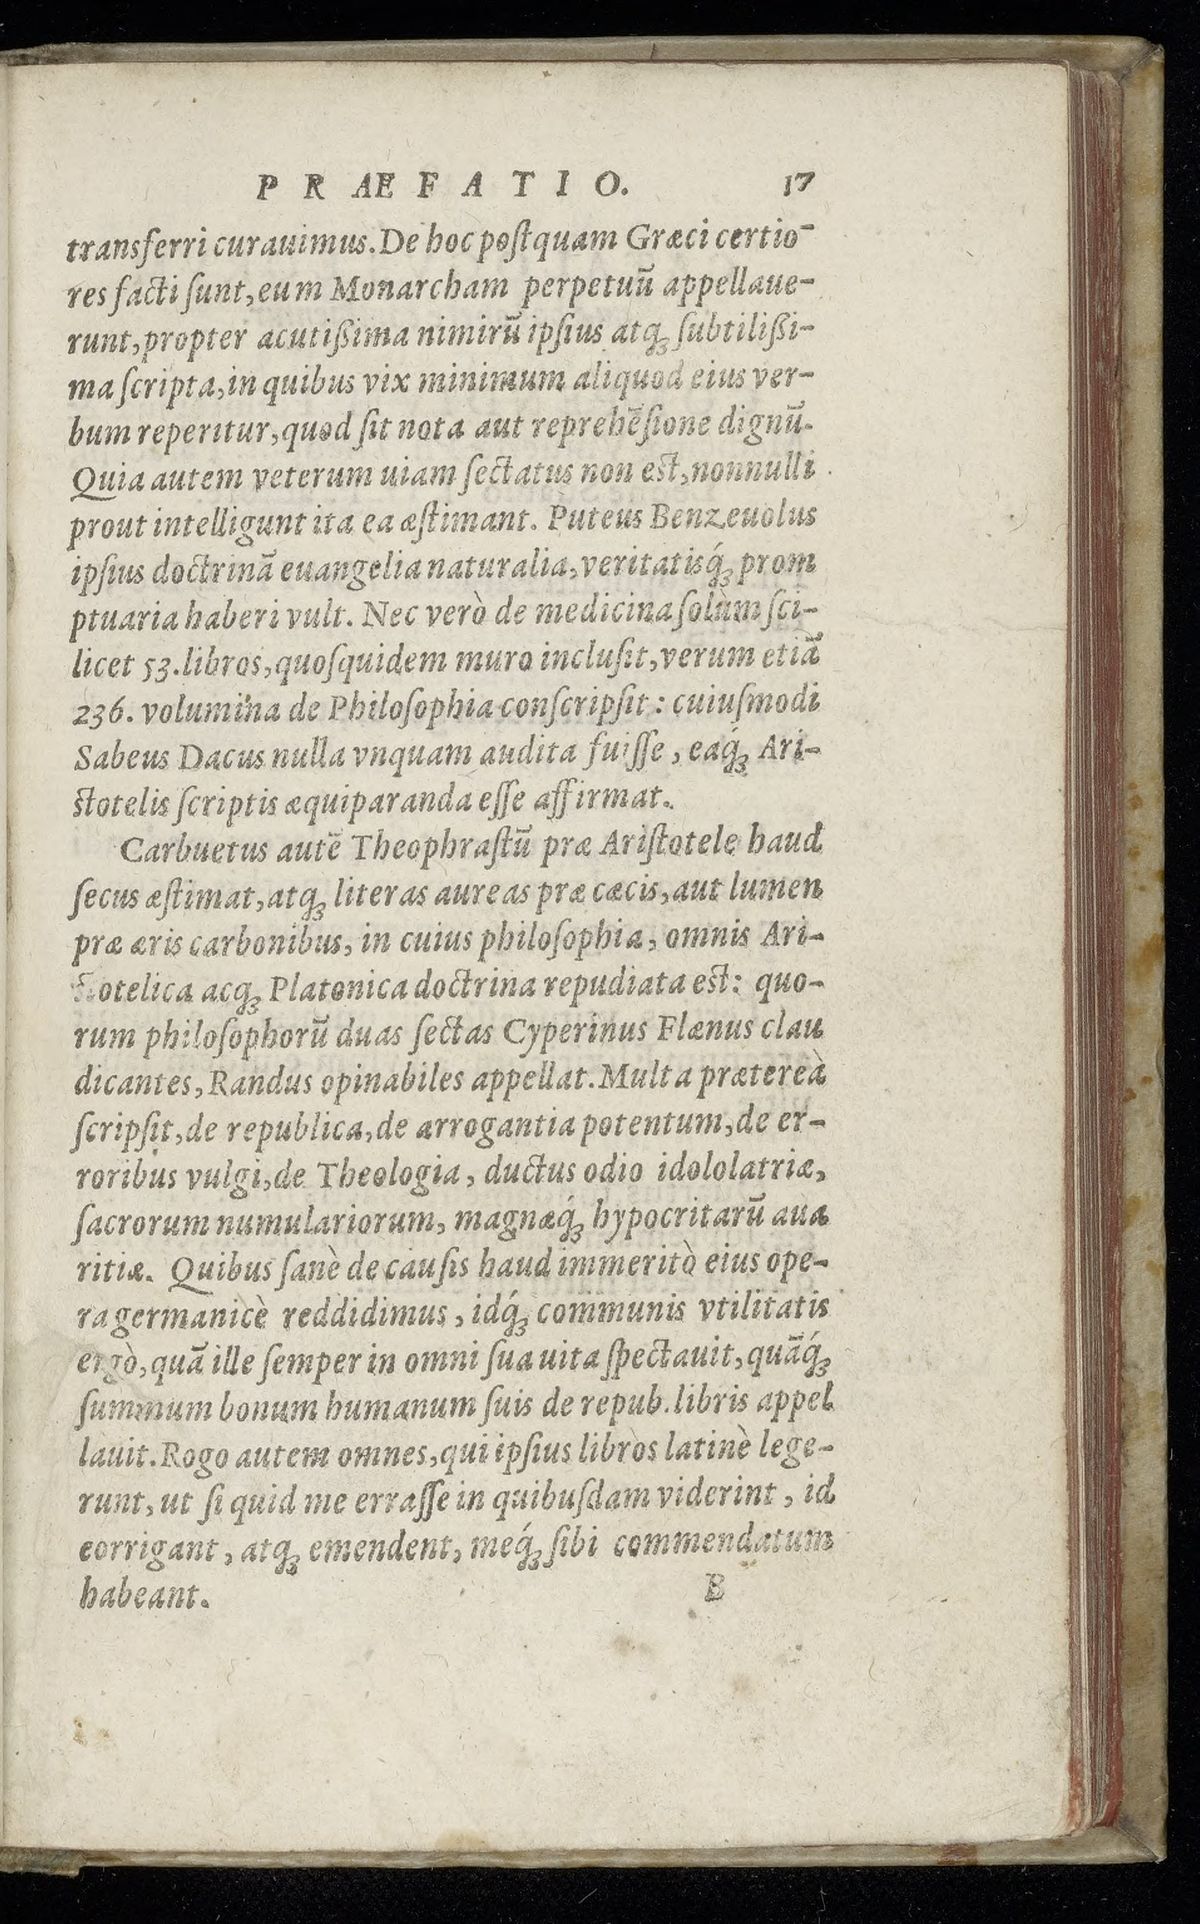 PRÆFATIO. 17
transferri curauimus. De hoc poſtquam Græci certio-
res facti ſunt, eum Monarcham perpetuũ appellaue-
runt, propter acutißima nimirũ ipſius atq́ꝫ ſubtilißi-
ma ſcripta, in quibus vix minimum aliquod eius ver-
bum reperitur, quod ſit nota aut reprehẽſione dignũ.
Quia autem veterum uiam ſectatus non eſt, nonnulli
prout intelligunt ita ea æſtimant. Puteus Benzeuolus
ipſius doctrinã euangelia naturalia, veritatisq́ꝫ prom
ptuaria haberi vult. Nec verò de medicina ſolùm ſci-
licet 53. libros, quoſquidem muro incluſit, verum etiã
236. volumina de Philoſophia conſcripſit: cuiuſmodi
Sabeus Dacus nulla vnquam audita fuiſſe, eaq́ꝫ Ari-
ſtotelis ſcriptis æquiparanda eſſe affirmat.
Carbuetus autẽ Theophraſtũ præ Ariſtotele haud
ſecus æſtimat, atqꝫ literas aureas præ cæcis, aut lumen
præ æris carbonibus, in cuius philoſophia, omnis Ari-
ſtotelica acqꝫ Platonica doctrina repudiata eſt: quo-
rum philoſophorũ duas ſectas Cyperinus Flænus clau
dicantes, Randus opinabiles appellat. Multa prætereà
ſcripſit, de republica, de arrogantia potentum, de er-
roribus vulgi, de Theologia, ductus odio idololatriæ,
ſacrorum numulariorum, magnæq́ꝫ hypocritarũ aua
ritiæ. Quibus ſanè de cauſis haud immeritò eius ope-
ra germanicè reddidimus, idq́ꝫ communis vtilitatis
ergò, quã ille ſemper in omni ſua uita ſpectauit, quãq́ꝫ
ſummum bonum humanum ſuis de repub. libris appel
lauit. Rogo autem omnes, qui ipſius libros latinè lege-
runt, ut ſi quid me erraſſe in quibuſdam viderint, id
corrigant, atqꝫ emendent, meq́ꝫ ſibi commendatum
habeant. B